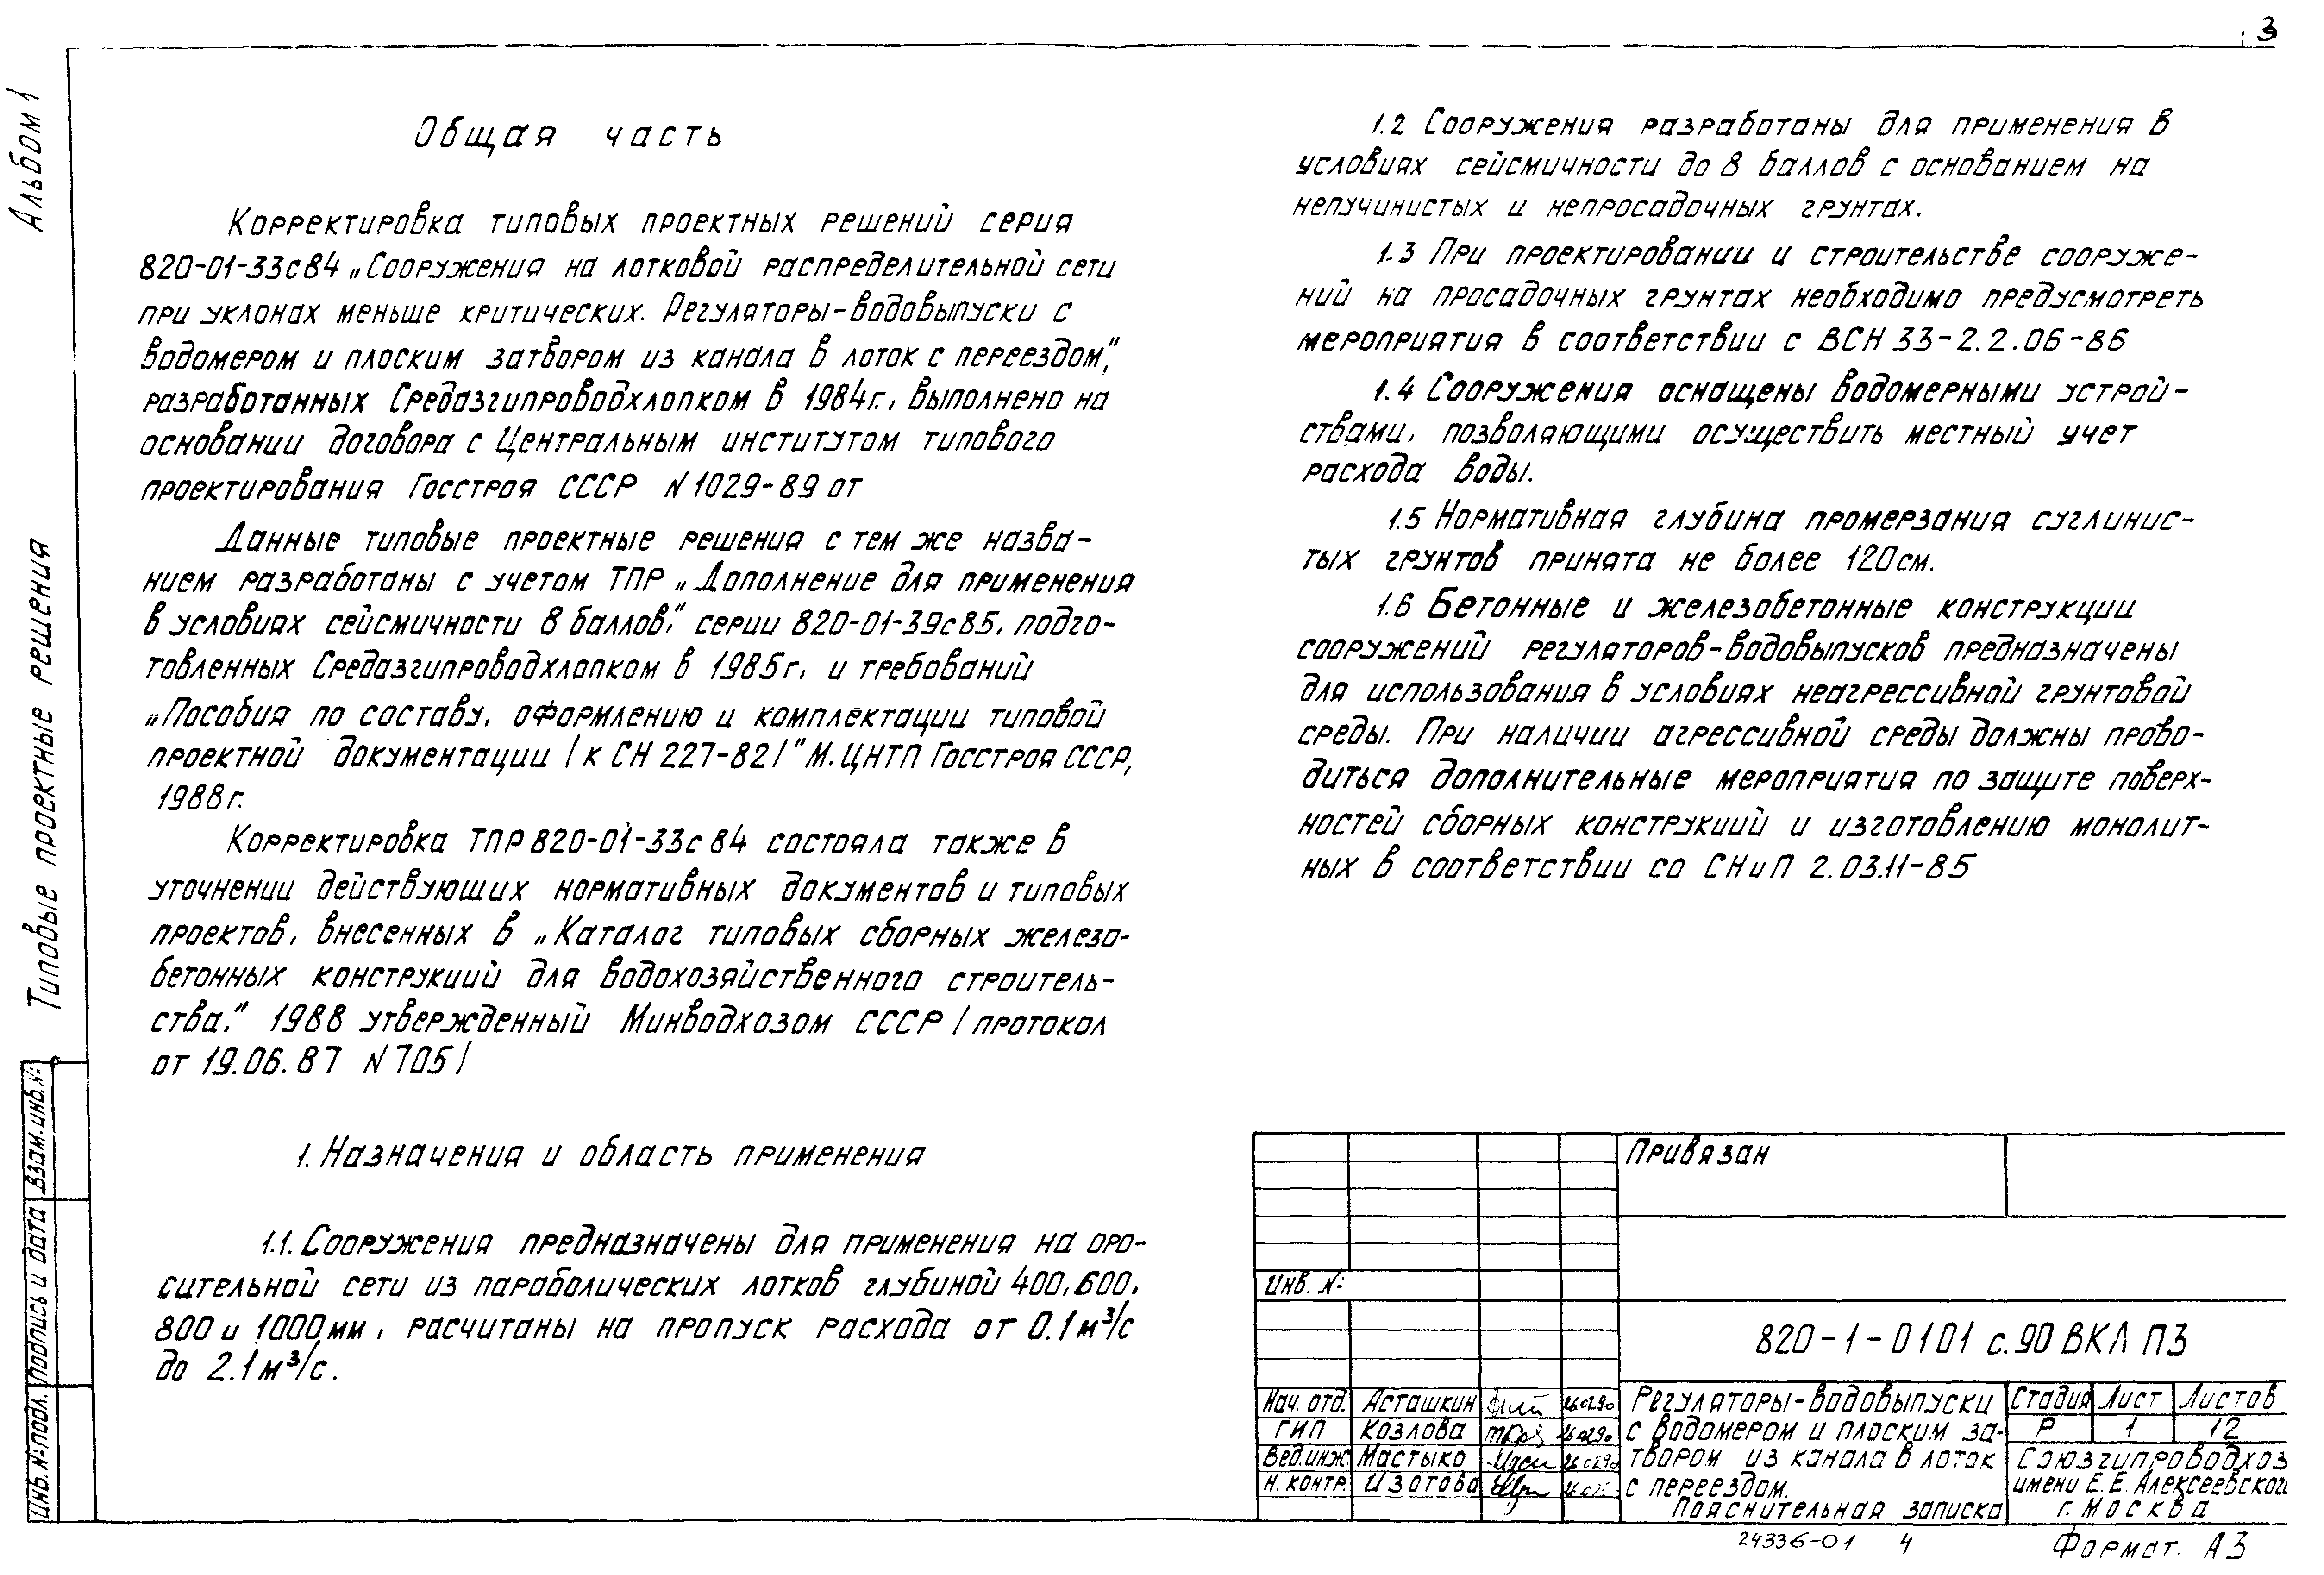 3
Альбом 1
Типовые проектные решения
Общая часть
Корректировка типовых проектных решений серия
820-01-33с84 „Сооружения на лотковой распределительной сети
при уклонах меньше критических. Регуляторы-водовыпуски с
водомером и плоским затвором из канала в лоток с переездом",
разработанных Средазгипроводхлопком в 1984г., выполнено на
основании договора с Центральным институтом типового
проектирования Госстроя СССР N 1029-89 от
Данные типовые проектные решения с тем же назва-
нием разработаны с учетом ТПР „Дополнение для применения
в условиях сейсмичности 8 баллов", серии 820-01-39с85, подго-
товленных Средазгипроводхлопком в 1985г. и требований
„Пособия по составу, оформлению и комплектации типовой
проектной документации / к СН 227-82/" М. ЦНТП Госстроя СССР,
1988г.
Корректировка ТПР 820-01-33с84 состояла также в
уточнении действующих нормативных документов и типовых
проектов, внесенных в „Каталог типовых сборных железо-
бетонных конструкций для водохозяйственного строитель-
ства." 1988 утвержденный Минводхозом СССР / протокол
от 19.06.87 N 705/
1. Назначения и область применения
1.1. Сооружения предназначены для применения на оро-
сительной сети из параболических лотков глубиной 400, 600,
800 и 1000 мм, расчитаны на пропуск расхода от 0.1 м³/с
до 2.1 м³/с.
1.2 Сооружения разработаны для применения в
условиях сейсмичности до 8 баллов с основанием на
непучинистых и непросадочных грунтах.
1.3 При проектировании и строительстве сооруже-
ний на просадочных грунтах необходимо предусмотреть
мероприятия в соответствии с ВСН 33-2.2.06-86
1.4 Сооружения оснащены водомерными устрой-
ствами, позволяющими осуществить местный учет
расхода воды.
1.5 Нормативная глубина промерзания суглинис-
тых грунтов принята не более 120см.
1.6 Бетонные и железобетонные конструкции
сооружений регуляторов-водовыпусков предназначены
для использования в условиях неагрессивной грунтовой
среды. При наличии агрессивной среды должны прово-
диться дополнительные мероприятия по защите поверх-
ностей сборных конструкций и изготовлению монолит-
ных в соответствии со СНиП 2.03.11-85
Взам. инв. №
Подпись и дата
Инв. № подл.
Привязан
Инв. №
820-1-0101 с.90 ВКЛ ПЗ
Нач. отд. Асташкин 26.02.90
ГИП Козлова 26.02.90
Вед. инж. Мастыко 26.02.90
Н. контр. Изотова
Регуляторы-водовыпуски
с водомером и плоским за-
твором из канала в лоток
с переездом.
Пояснительная записка
Стадия Лист Листов
Р 1 12
Союзгипроводхоз
имени Е.Е. Алексеевского
г. Москва
24336-01 4
Формат. А3